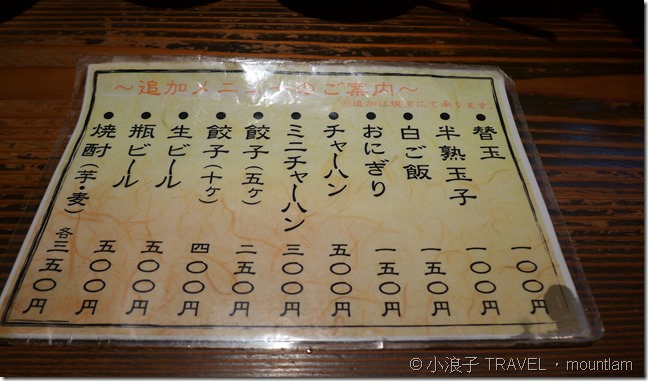 ～追加メニューのご案内～
※追加は現金にて承ります。
●替玉 一〇〇円
●半熟玉子 一〇〇円
●白ご飯 一五〇円
●おにぎり 一五〇円
●チャーハン 五〇〇円
●ミニチャーハン 三〇〇円
●餃子(五ケ) 二五〇円
●餃子(十ケ) 四〇〇円
●生ビール 五〇〇円
●瓶ビール 五〇〇円
●焼酎(芋・麦) 各三五〇円
© 小浪子 TRAVEL・mountlam